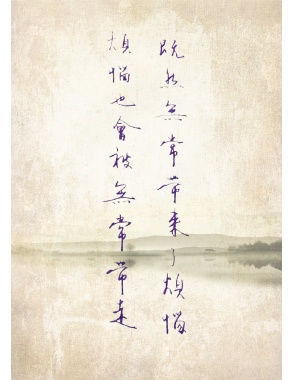 既然無常帶來了煩惱
煩惱也會被無常帶走